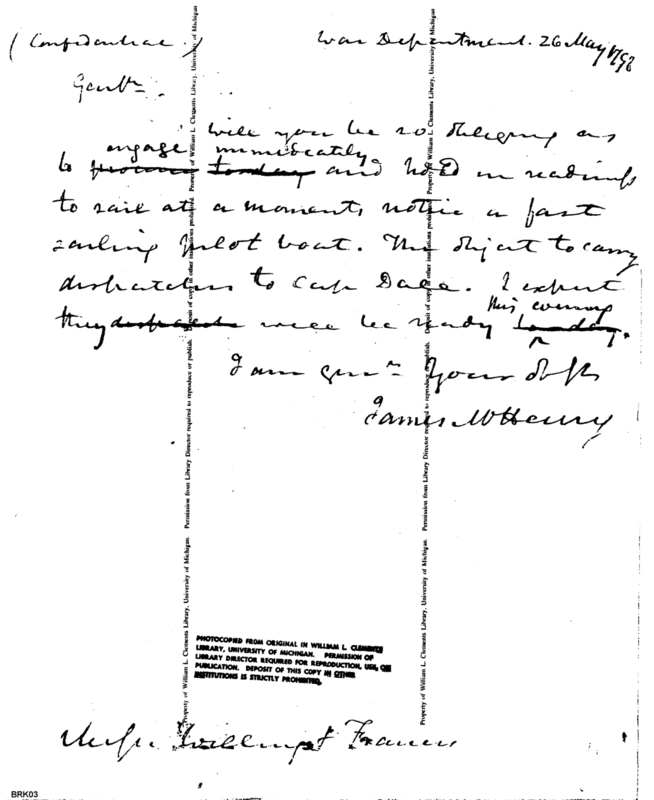 (Confidential.) War Department. 26 May 1798
Gentn.
will you be so obliging as
engage immediately
to procure to-day and hold in readiness
to sail at a moments notice a fast
sailing pilot boat. The object to carry
dispatches to Capn Dale. I expect
this evening
they dispatches will be ready to-day.
I am gentn Your obt
James McHenry
Messrs Willing & Francis
Property of William L. Clements Library, University of Michigan. Permission from Library Director required to reproduce or publish. Deposit of copy in other institutions prohibited. Property of William L. Clements Library, University of Michigan
Property of William L. Clements Library, University of Michigan. Permission from Library Director required to reproduce or publish. Deposit of copy in other institutions prohibited. Property of William L. Clements Library, University of Michigan
PHOTOCOPIED FROM ORIGINAL IN WILLIAM L. CLEMENTS
LIBRARY, UNIVERSITY OF MICHIGAN. PERMISSION OF
LIBRARY DIRECTOR REQUIRED FOR REPRODUCTION, USE, OR
PUBLICATION. DEPOSIT OF THIS COPY IN OTHER
INSTITUTIONS IS STRICTLY PROHIBITED.
BRK03